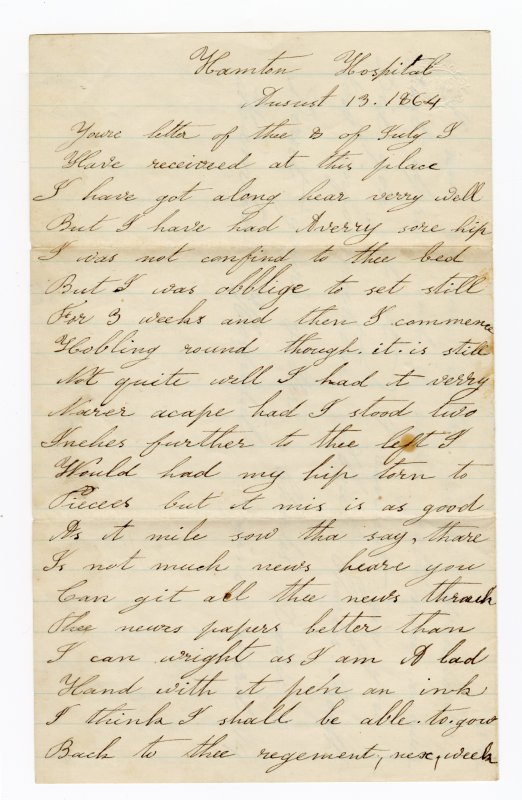 Hamton Hospital
August 13. 1864
Youre letter of thee 8 of July I
Have receieved at this place
I have got along hear verry well
But I have had Averry sore hip
I was not confind to thee bed
But I was obblige to set still
For 3 weeks and then I commence
Hobling round though. it. is still
Not quite well I had A verry
Narer acape had I stood two
Inches further to thee left I
Would had my hip torn to
Pieces but A mis is as good
As A mile sow tha say, thare
Is not much news heare you
Can git all thee news thrauh
Thee newes papers better than
I can wright as I am A bad
Hand with A pen an ink
I think I shall be able. to. gow
Back to thee regement, nex, week